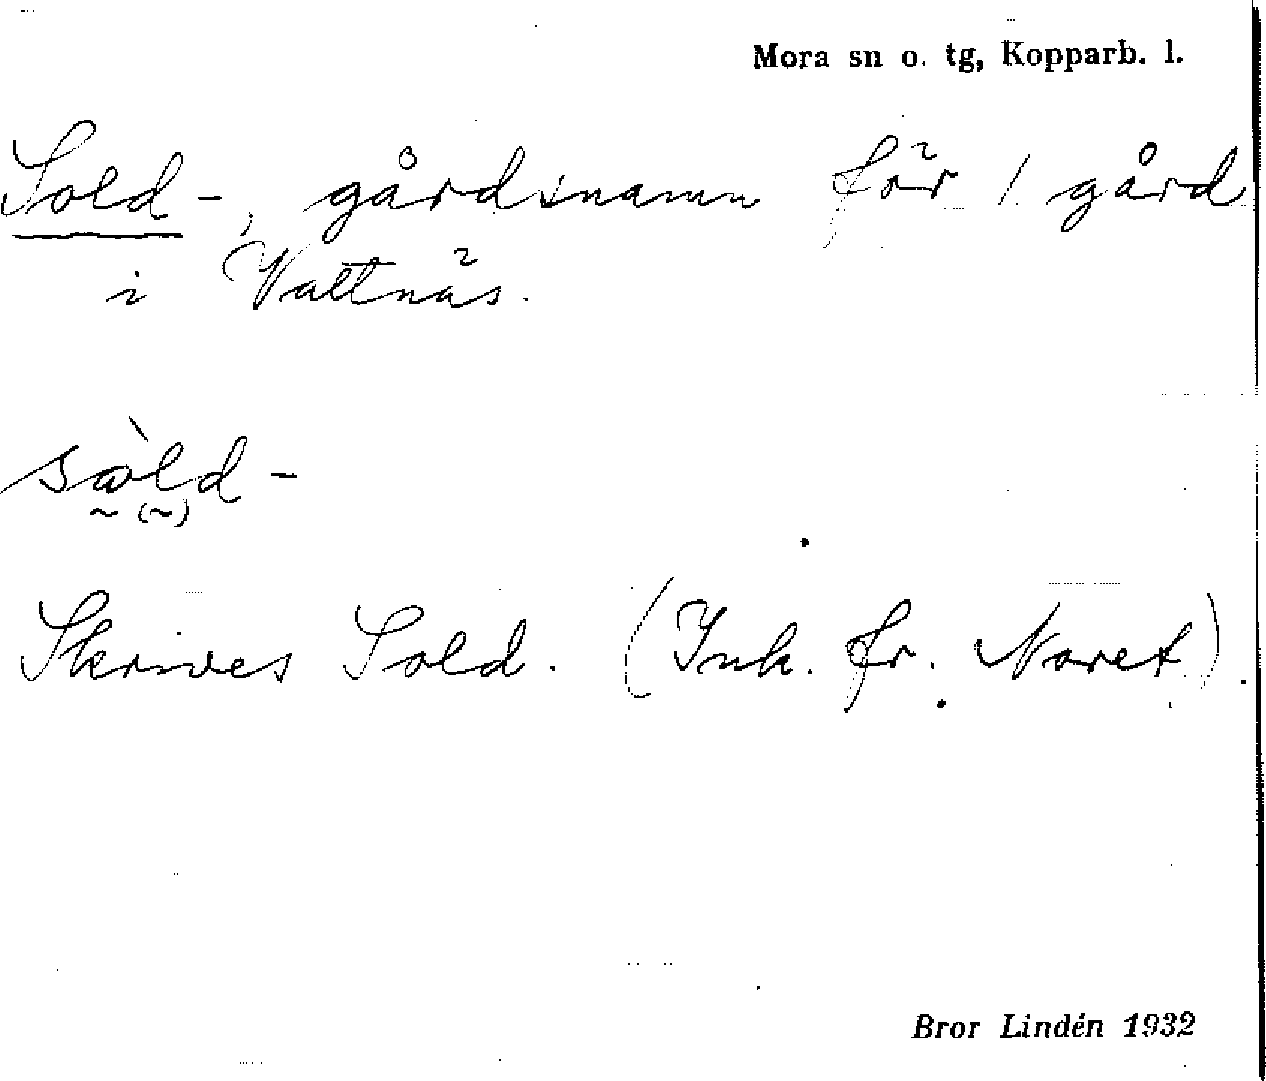 Mora sn o. tg, Kopparb. l.
Sold-, gårdsnamn för 1 gård
i Vattnäs.
sòld-
~ (~)
Skrives Sold. (Ink. fr. Noret).
Bror Lindén 1932